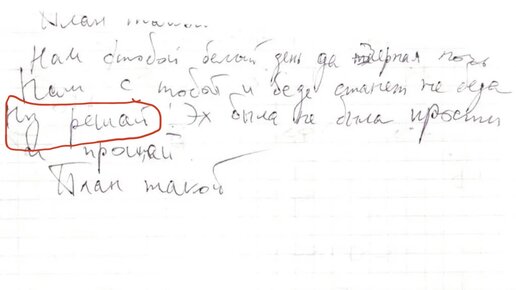 План такой
Нам с тобой белый день да черная ночь
Нам с тобой и беда станет не беда
Ну решай! Эх была не была прости
и прощай
План такой